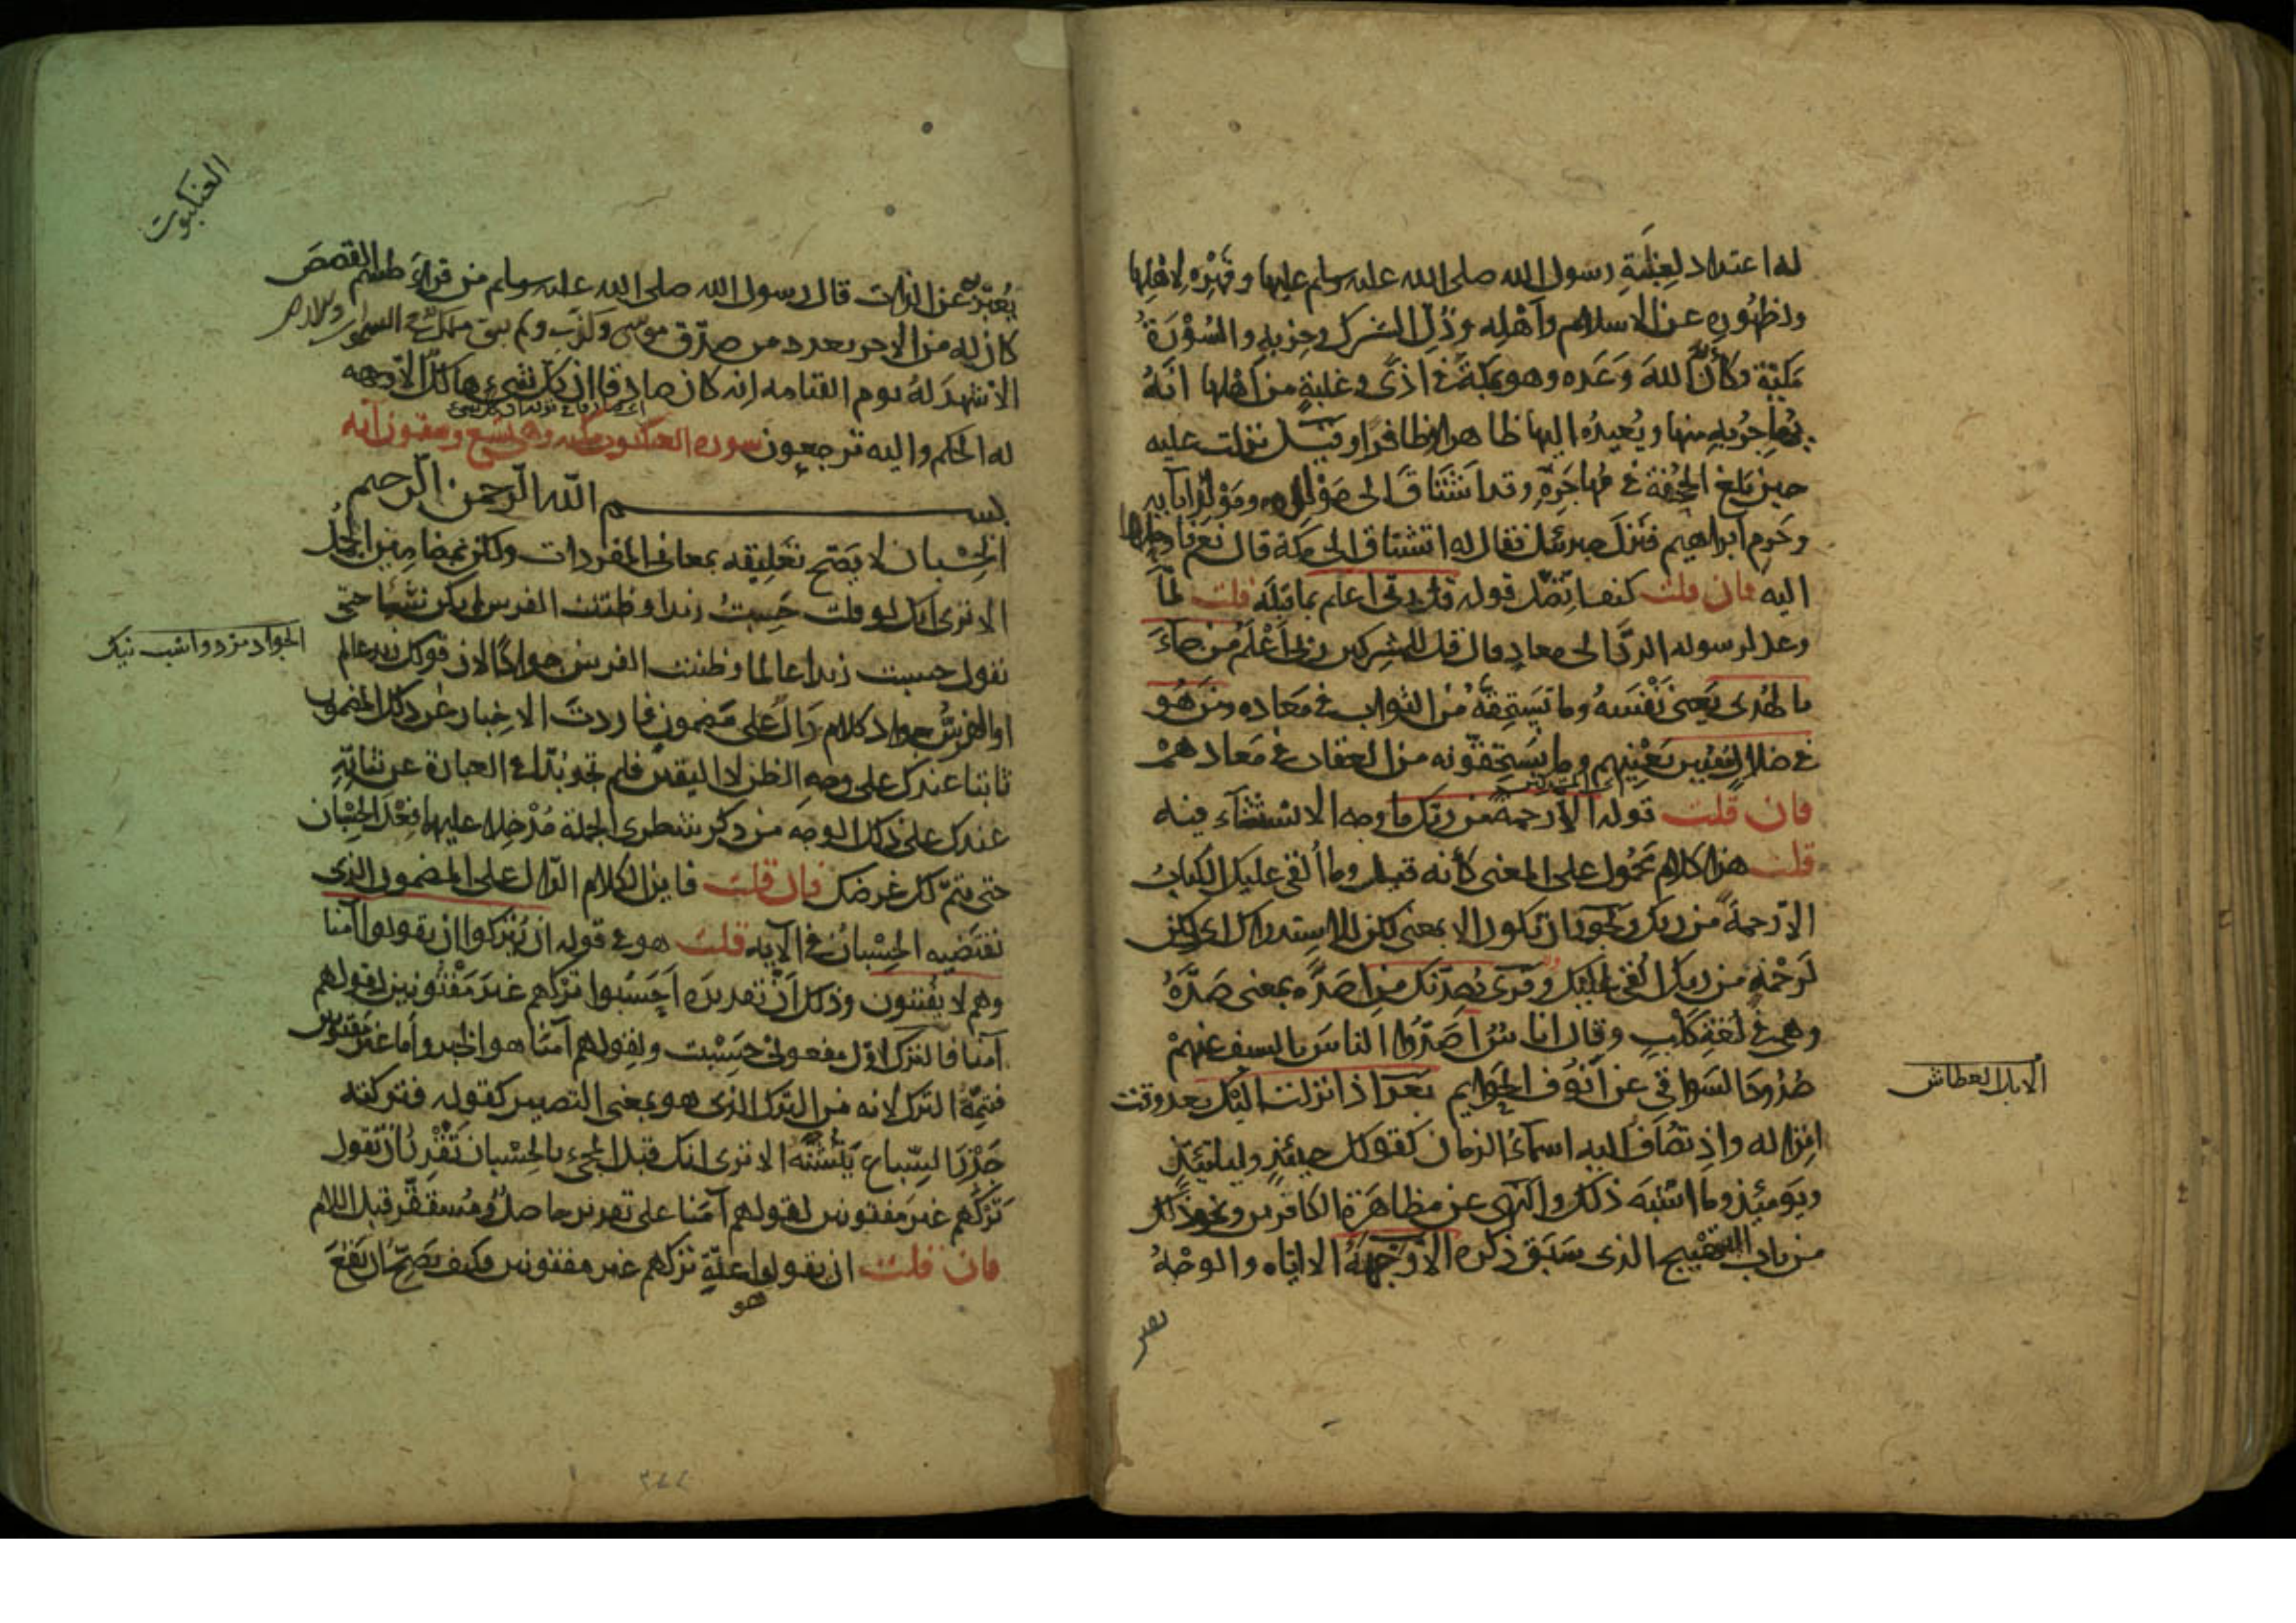 له اعتداد لغلبة رسول الله صلى الله عليه وسلم عليها وقهره لاهلها
ولظهور عز الاسلام واهله وذل الشرك وحزبه والسورة
مكية وكأن الله وعده وهو بمكة في اذى وغلبة من اهلها انه
يهاجر به منها ويعيده اليها ظاهرا ظافرا وقيل نزلت عليه
حين بلغ الجحفة في مهاجره وقد اشتاق الى مولده ومولد آبائه
وحرم ابراهيم فنزل جبرئيل فقال له اتشتاق الى مكة قال نعم فاوحاها
اليه فان قلت كيف اتصل قوله قل ربى اعلم بما قبله قلت لما
وعد لرسوله الرد الى معاد قال قل للمشركين ربى اعلم من جاء
بالهدى يعنى نفسه وما يستحقه من الثواب في معاده ومن هو
في ضلال مبين يعنيهم وما يستحقونه من العقاب في معادهم
فان قلت قوله الا رحمة من ربك ما وجه الاستثناء فيه
قلت هذا كلام محمول على المعنى كأنه قيل وما القى عليك الكتاب
الا رحمة من ربك ويجوز ان تكون الا بمعنى لكن للاستدراك اى ولكن
لرحمة من ربك القى عليك وقرئ يصدنك من اصده بمعنى صده
وهى في لغة كلب وقال اناس اصدوا الناس بالسيف عنهم
صدود السواقى عن انوف الحوايم بعد اذ انزلت اليك بعد وقت
انزاله واذ تضاف اليه اسماء الزمان كقولك حينئذ وليلتئذ
ويومئذ وما اشبه ذلك والنهى عن مظاهرة الكافرين ونحو ذلك
من باب التهييج الذى سبق ذكره الا وجهه الا اياه والوجه
يعبر
الابل العطاش
العنكبوت
يعبر به عن الذات قال رسول الله صلى الله عليه وسلم من قرأ طسم القصص
كان له من الاجر بعدد من صدق موسى وكذب ولم يبق ملك في السموات والارض
الا شهد له يوم القيامة انه كان صادقا ان كل شيء هالك الا وجهه
له الحكم واليه ترجعون سورة العنكبوت مكية وهى تسع وستون آية
بسم الله الرحمن الرحيم
الحسبان لا يصح تعليقه بمعانى المفردات ولكن بمضامين الجمل
الا ترى انك لو قلت حسبت زيدا وظننت الفرس لم يكن شيئا حتى
تقول حسبت زيدا عالما وظننت الفرس جوادا لان قولك زيد عالم
او الفرس جواد كلام دال على مضمون فاردت الاخبار عن ذلك المضمون
ثابتا عندك على وجه الظن لا اليقين فلم تجد بدا في العبارة عن ثباته
عندك على ذلك الوجه من ذكر شطرى الجملة مدخلا عليهما فعل الحسبان
حتى يتم لك غرضك فان قلت فاين الكلام الدال على المضمون الذى
يقتضيه الحسبان في الآية قلت هو في قوله ان يتركوا ان يقولوا آمنا
وهم لا يفتنون وذلك ان تقديره احسبوا تركهم غير مفتونين لقولهم
آمنا فالترك اول مفعولى حسبت ولقولهم آمنا هو الخبر واما غير مفتونين
فتتمة الترك لانه من الترك الذى هو بمعنى التصيير كقوله فتركته
جزر السباع ينشنه الا ترى انك قبل المجئ بالحسبان تقدر ان تقول
تركهم غير مفتونين لقولهم آمنا على تقدير حاصل ومستقر قبل اللام
فان قلت ان يقولوا هو علة تركهم غير مفتونين فكيف يصح ان يقع